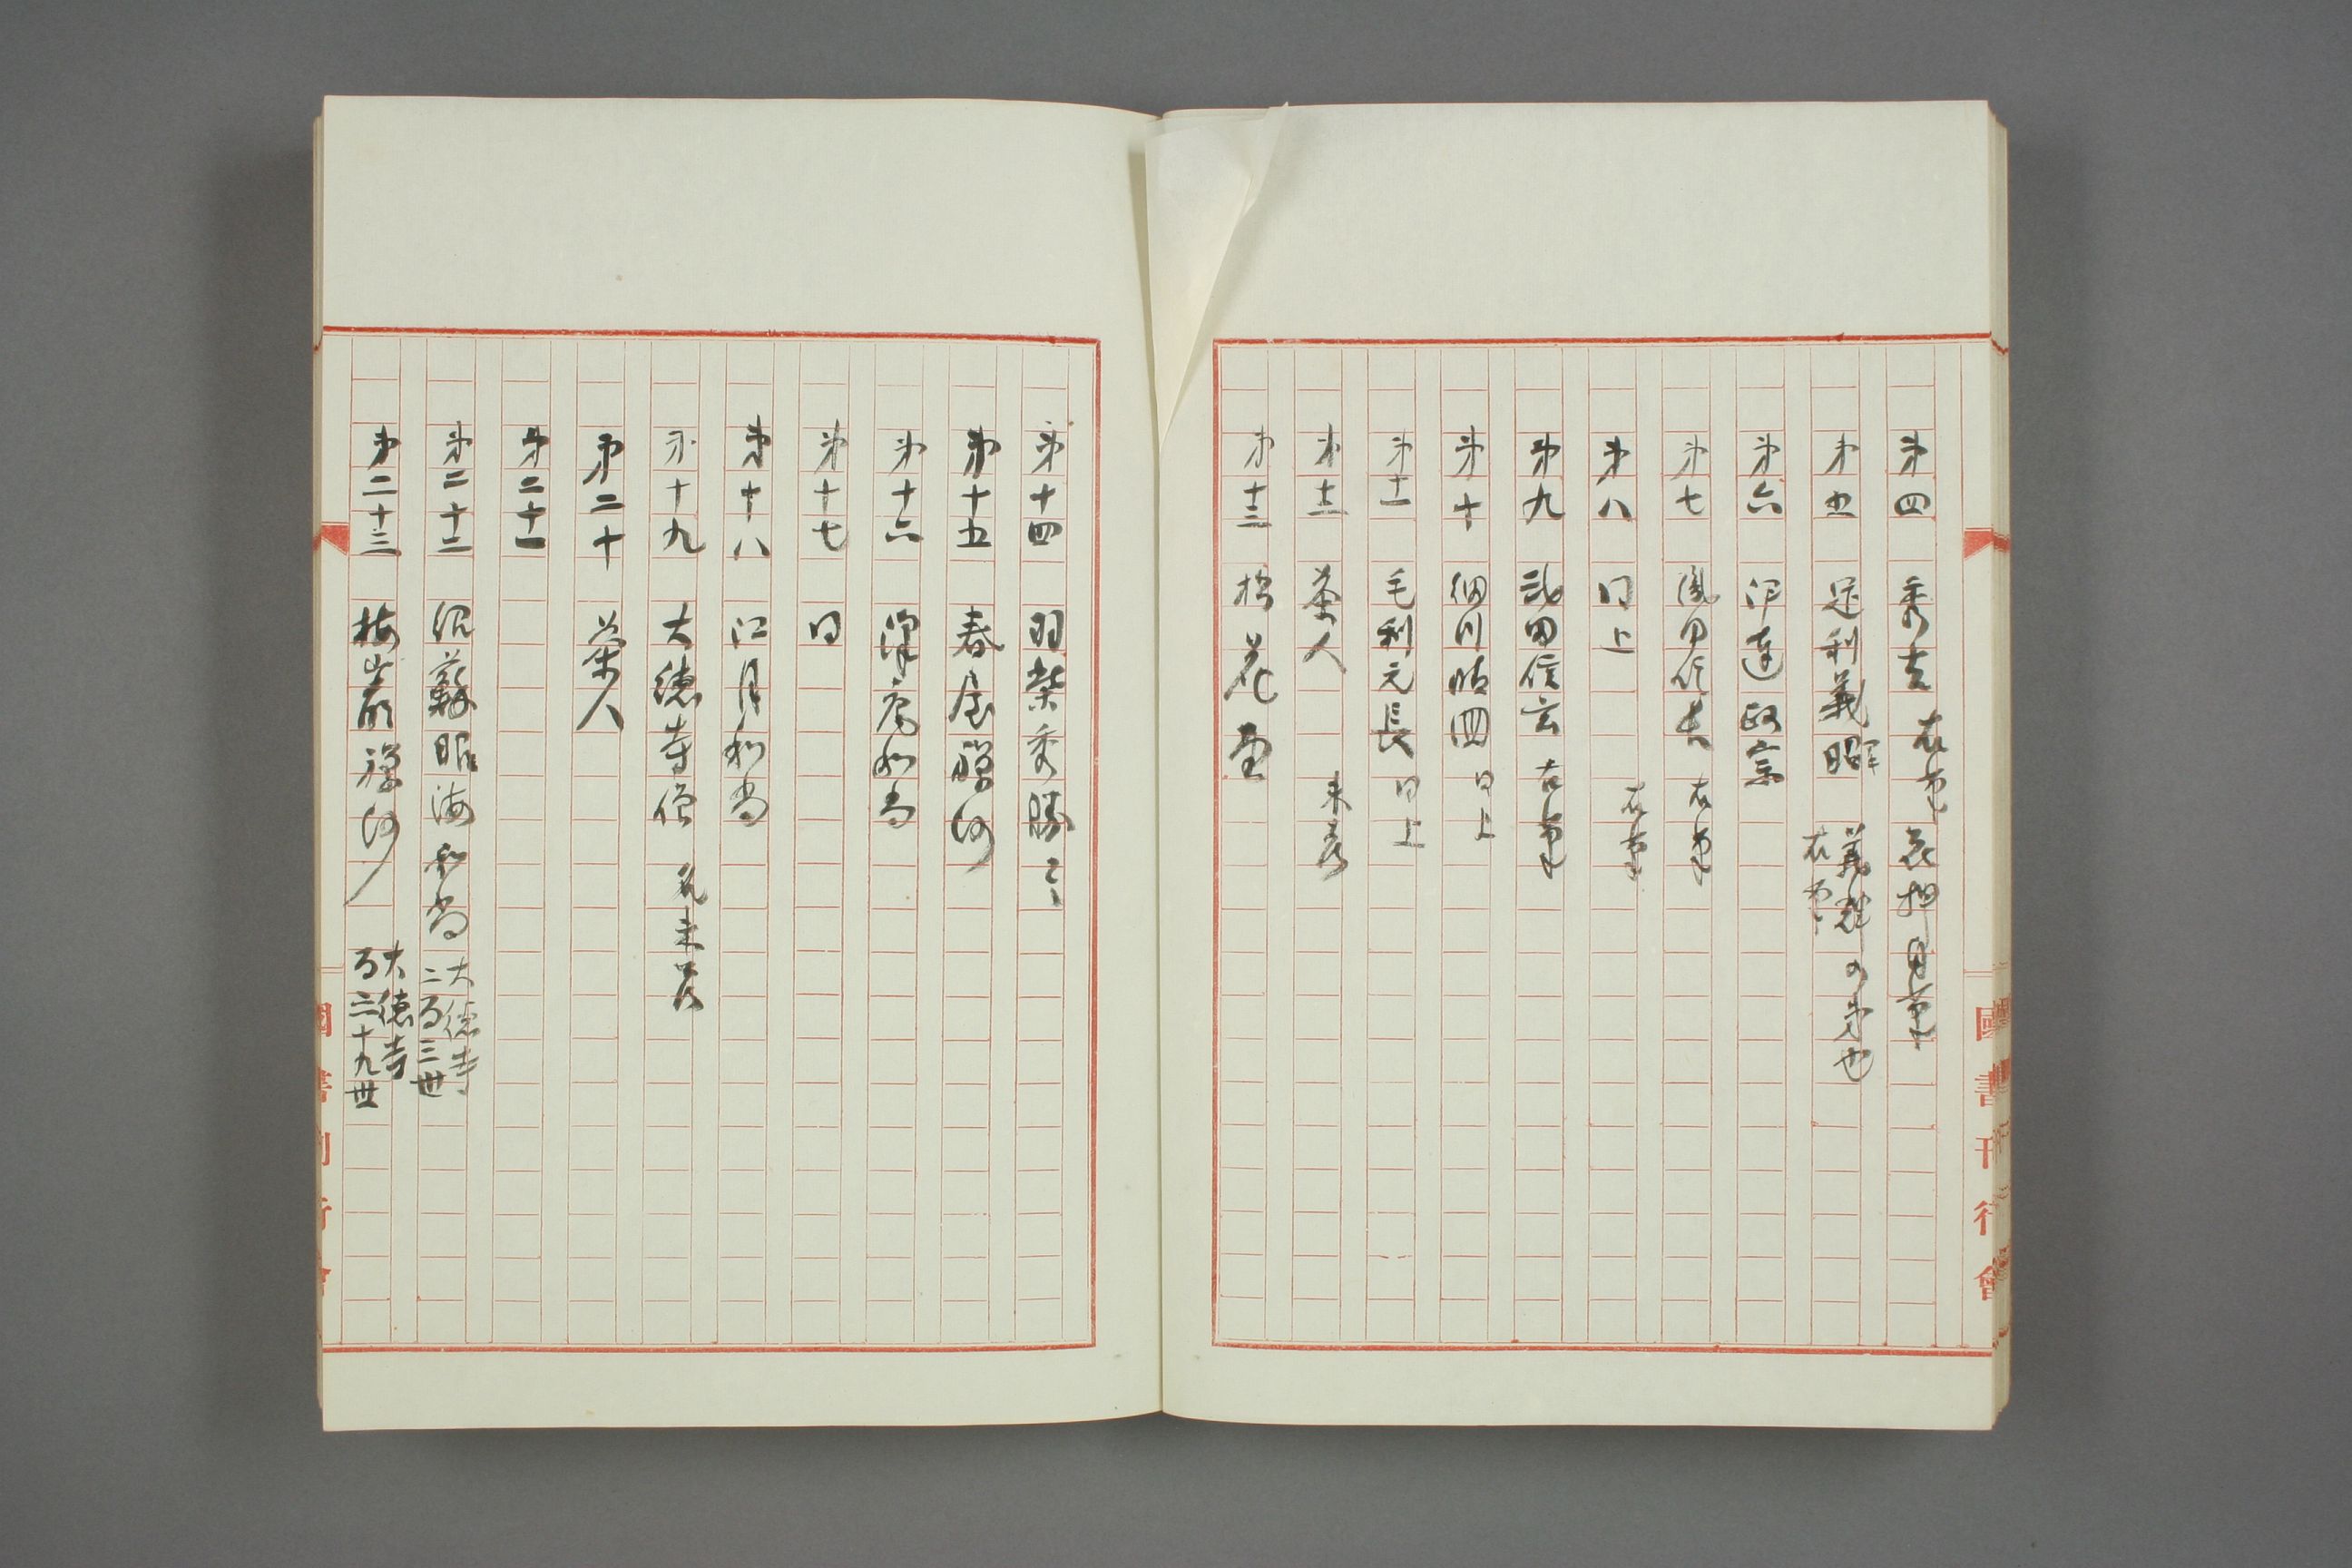 第四 秀吉 右筆 花押自筆
第五 足利義昭 義輝の弟也 右筆
第六 伊達政宗
第七 織田信長 右筆
第八 同上 右筆
第九 武田信玄 右筆
第十 細川 同上
第十一 毛利元長 同上
第十二 茶人 未考
第十三 松花堂
第十四 羽柴秀勝
第十五 春屋禅師
第十六 澤庵和尚
第十七 同
第十八 江月和尚
第十九 大徳寺僧 名未考
第二十 茶人
第二十一
第二十二 和尚 大徳寺 二百三世
第二十三 禅師 大徳寺 百二十九世
國書刊行會